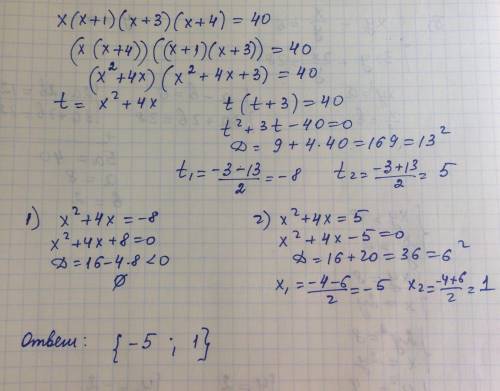 x(x+1)(x+3)(x+4)=40
(x(x+4))((x+1)(x+3))=40
(x²+4x)(x²+4x+3)=40
t= x²+4x t(t+3)=40
t²+3t-40=0
D= 9+4·40=169=13²
t₁=(-3-13)/2=-8 t₂=(-3+13)/2= 5
1) x²+4x=-8
x²+4x+8=0
D=16-4·8<0
∅
2) x²+4x=5
x²+4x-5=0
D=16+20=36=6²
x₁=(-4-6)/2=-5 x₂=(-4+6)/2=1
Ответ: {-5 ; 1}